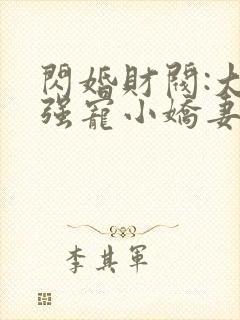 閃婚財閥:大
强寵小嬌妻
李其軍